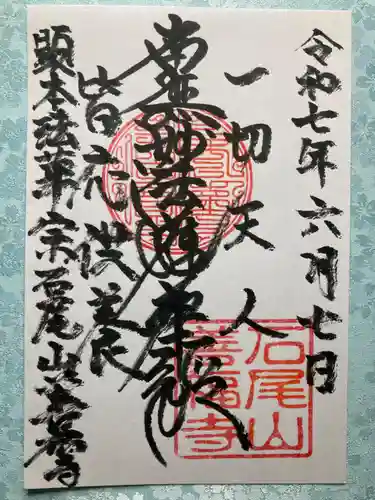 令和七年六月七日
一切天人
南無妙法蓮華経
皆応供養
顕本法華宗石尾山
石尾山